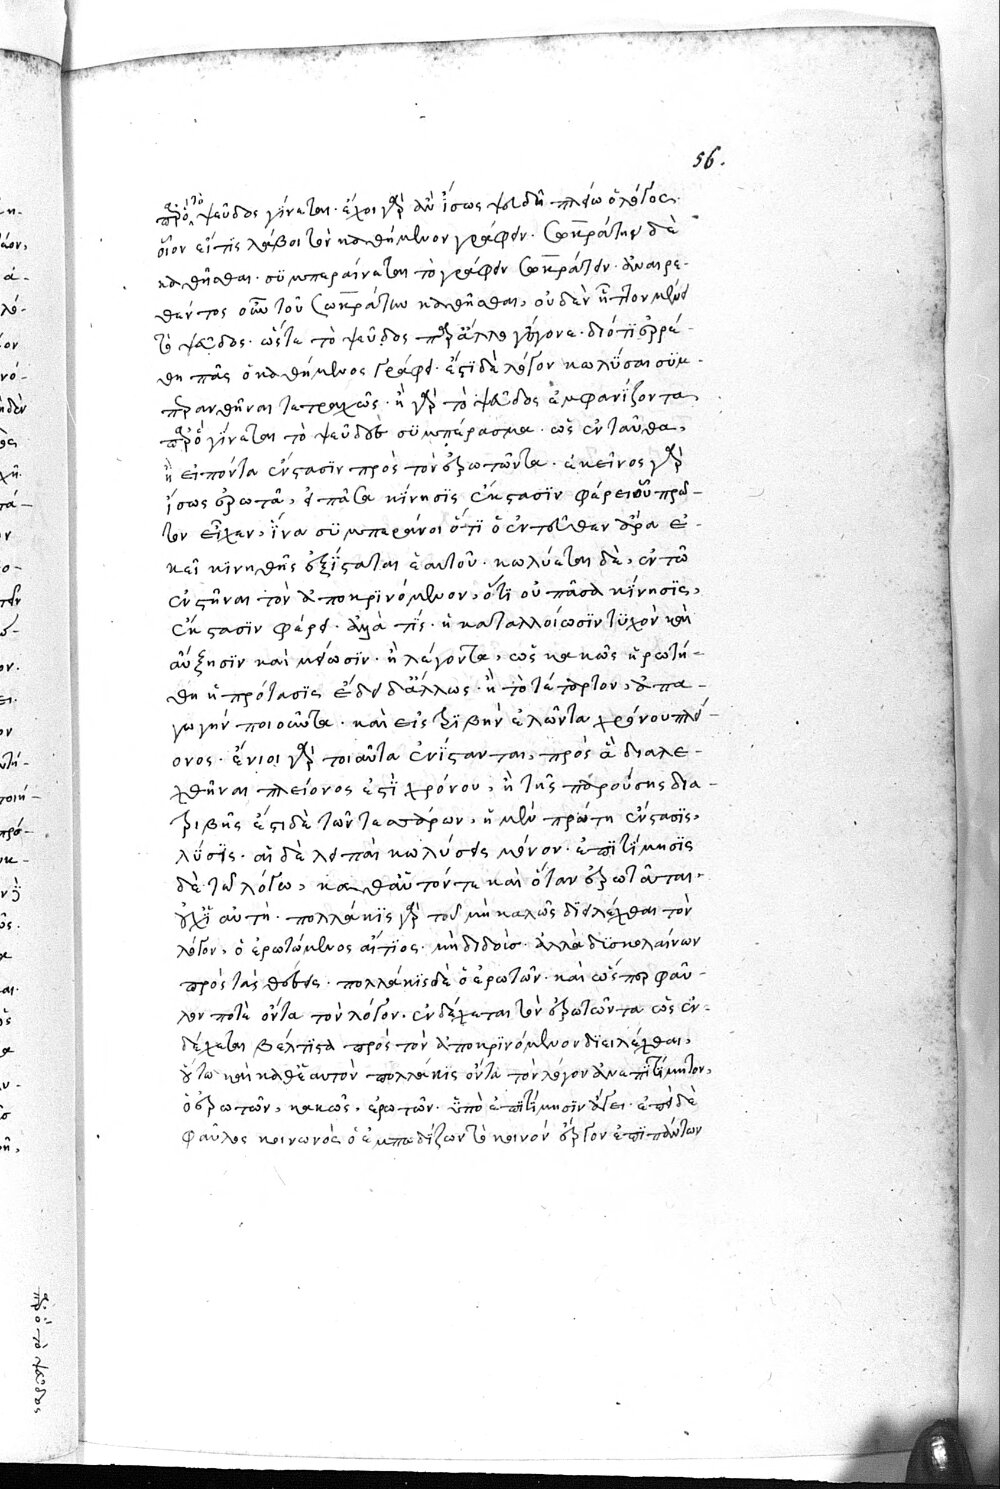 56.
παρ' ὃ τὸ ψεῦδος γίνεται· ἔχοι γὰρ ἂν ἴσως ψευδῆ πλείω ὁ λόγος·
οἷον εἴ τις λάβοι τὸν καθήμενον γράφειν· Σωκράτην δὲ
καθῆσθαι· συμπεραίνεται τὸ γράφειν Σωκράτην· ἀναιρε-
θέντος οὖν τοῦ Σωκράτην καθῆσθαι, οὐδὲν ἧττον μένει
τὸ ψεῦδος· ὥστε τὸ ψεῦδος παρ' ἄλλο γέγονε· διότι ἐρρέ-
θη πᾶς ὁ καθήμενος γράφει· ἔστι δὲ λόγον κωλῦσαι συμ-
περανθῆναι τετραχῶς· ἢ γὰρ τὸ ψεῦδος ἐμφανίζοντα,
παρ' ὃ γίνεται τὸ ψευδὲς συμπέρασμα· ὡς ἐνταῦθα,
ἢ εἰπόντα ἔνστασιν πρὸς τὸν ἐρωτῶντα· ἐκεῖνος γὰρ
ἴσως ἐρωτᾷ, εἰ πᾶσα κίνησις ἔκστασιν φέρει οὗ πρώ-
τον εἶχεν, ἵνα συμπεράνοι ὅτι ὁ ἐντεῦθεν ἄρα ἐ-
κεῖ κινηθεὶς ἐξίσταται ἑαυτοῦ· κωλύεται δὲ, ἐν τῷ
ἐνστῆναι τὸν ἀποκρινόμενον, ὅτι οὐ πᾶσα κίνησις,
ἔκστασιν φέρει· ἀλλά τις· ἢ κατ' ἀλλοίωσιν τυχὸν καὶ
αὔξησιν καὶ μείωσιν· ἢ λέγοντα, ὡς κακῶς ἠρωτή-
θη ἡ πρότασις ἔδει δ' ἄλλως· ἢ τὸ τέταρτον, ἀπα-
γωγὴν ποιοῦντα· καὶ εἰς τριβὴν ἐλῶντα χρόνου πλεί-
ονος· ἔνιοι γὰρ τοιαῦτα ἐνίστανται, πρὸς ἃ διαλε-
χθῆναι πλείονος ἐστὶ χρόνου, ἢ τῆς παρούσης δια-
τριβῆς ἔστι δὲ τῶν τεσσάρων, ἡ μὲν πρώτη ἔνστασις,
λύσις· αἱ δὲ λοιπαὶ κωλύσεις μόνον· ἐπιτίμησις
δὲ τῷ λόγῳ, καθ' αὑτόν τε καὶ ὅταν ἐρωτᾶται·
οὐχ ἡ αὐτή· πολλάκις γὰρ τοῦ μὴ καλῶς διειλέχθαι τὸν
λόγον, ὁ ἐρωτώμενος αἴτιος· μὴ διδοὺς· ἀλλὰ δυσκολαίνων
πρὸς τὰς θέσεις· πολλάκις δὲ ὁ ἐρωτῶν· καὶ ὥσπερ φαῦ-
λον ποτὲ ὄντα τὸν λόγον· ἐνδέχεται τὸν ἐρωτῶντα ὡς ἐν-
δέχεται βέλτιστα πρὸς τὸν ἀποκρινόμενον διειλέχθαι,
οὕτω καὶ καθ' ἑαυτὸν πολλάκις ὄντα τὸν λόγον ἀνεπιτίμητον,
ὁ ἐρωτῶν, κακῶς, ἐρωτῶν· ὑπὸ ἐπιτίμησιν ἄγει· ἐπεὶ δὲ
φαῦλος κοινωνὸς ὁ ἐμποδίζων τὸ κοινὸν ἔργον ἐπὶ πάντων
παρ' ὃ τὸ ψεῦδος